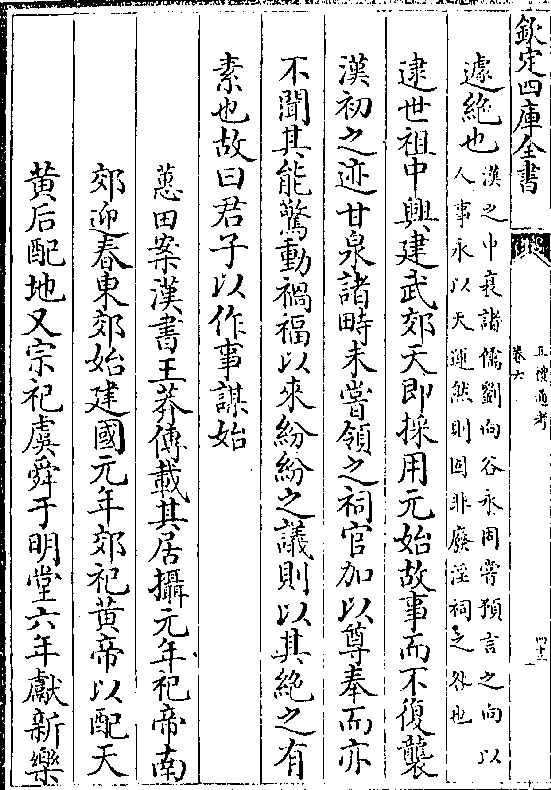 欽定四庫全書
五禮通考
卷六
四十二
遽絶也
漢之中衰諸儒劉向谷永固嘗預言之向以
人事永以天運然則固非廢淫祠之咎也
逮世祖中興建武郊天即採用元始故事而不復襲
漢初之迹甘泉諸畤未嘗領之祠官加以尊奉而亦
不聞其能驚動禍福以來紛紛之議則以其絶之有
素也故曰君子以作事謀始
蕙田案漢書王莽傳載其居攝元年祀帝南
郊迎春東郊始建國元年郊祀黄帝以配天
黄后配地又宗祀虞舜于明堂六年獻新樂